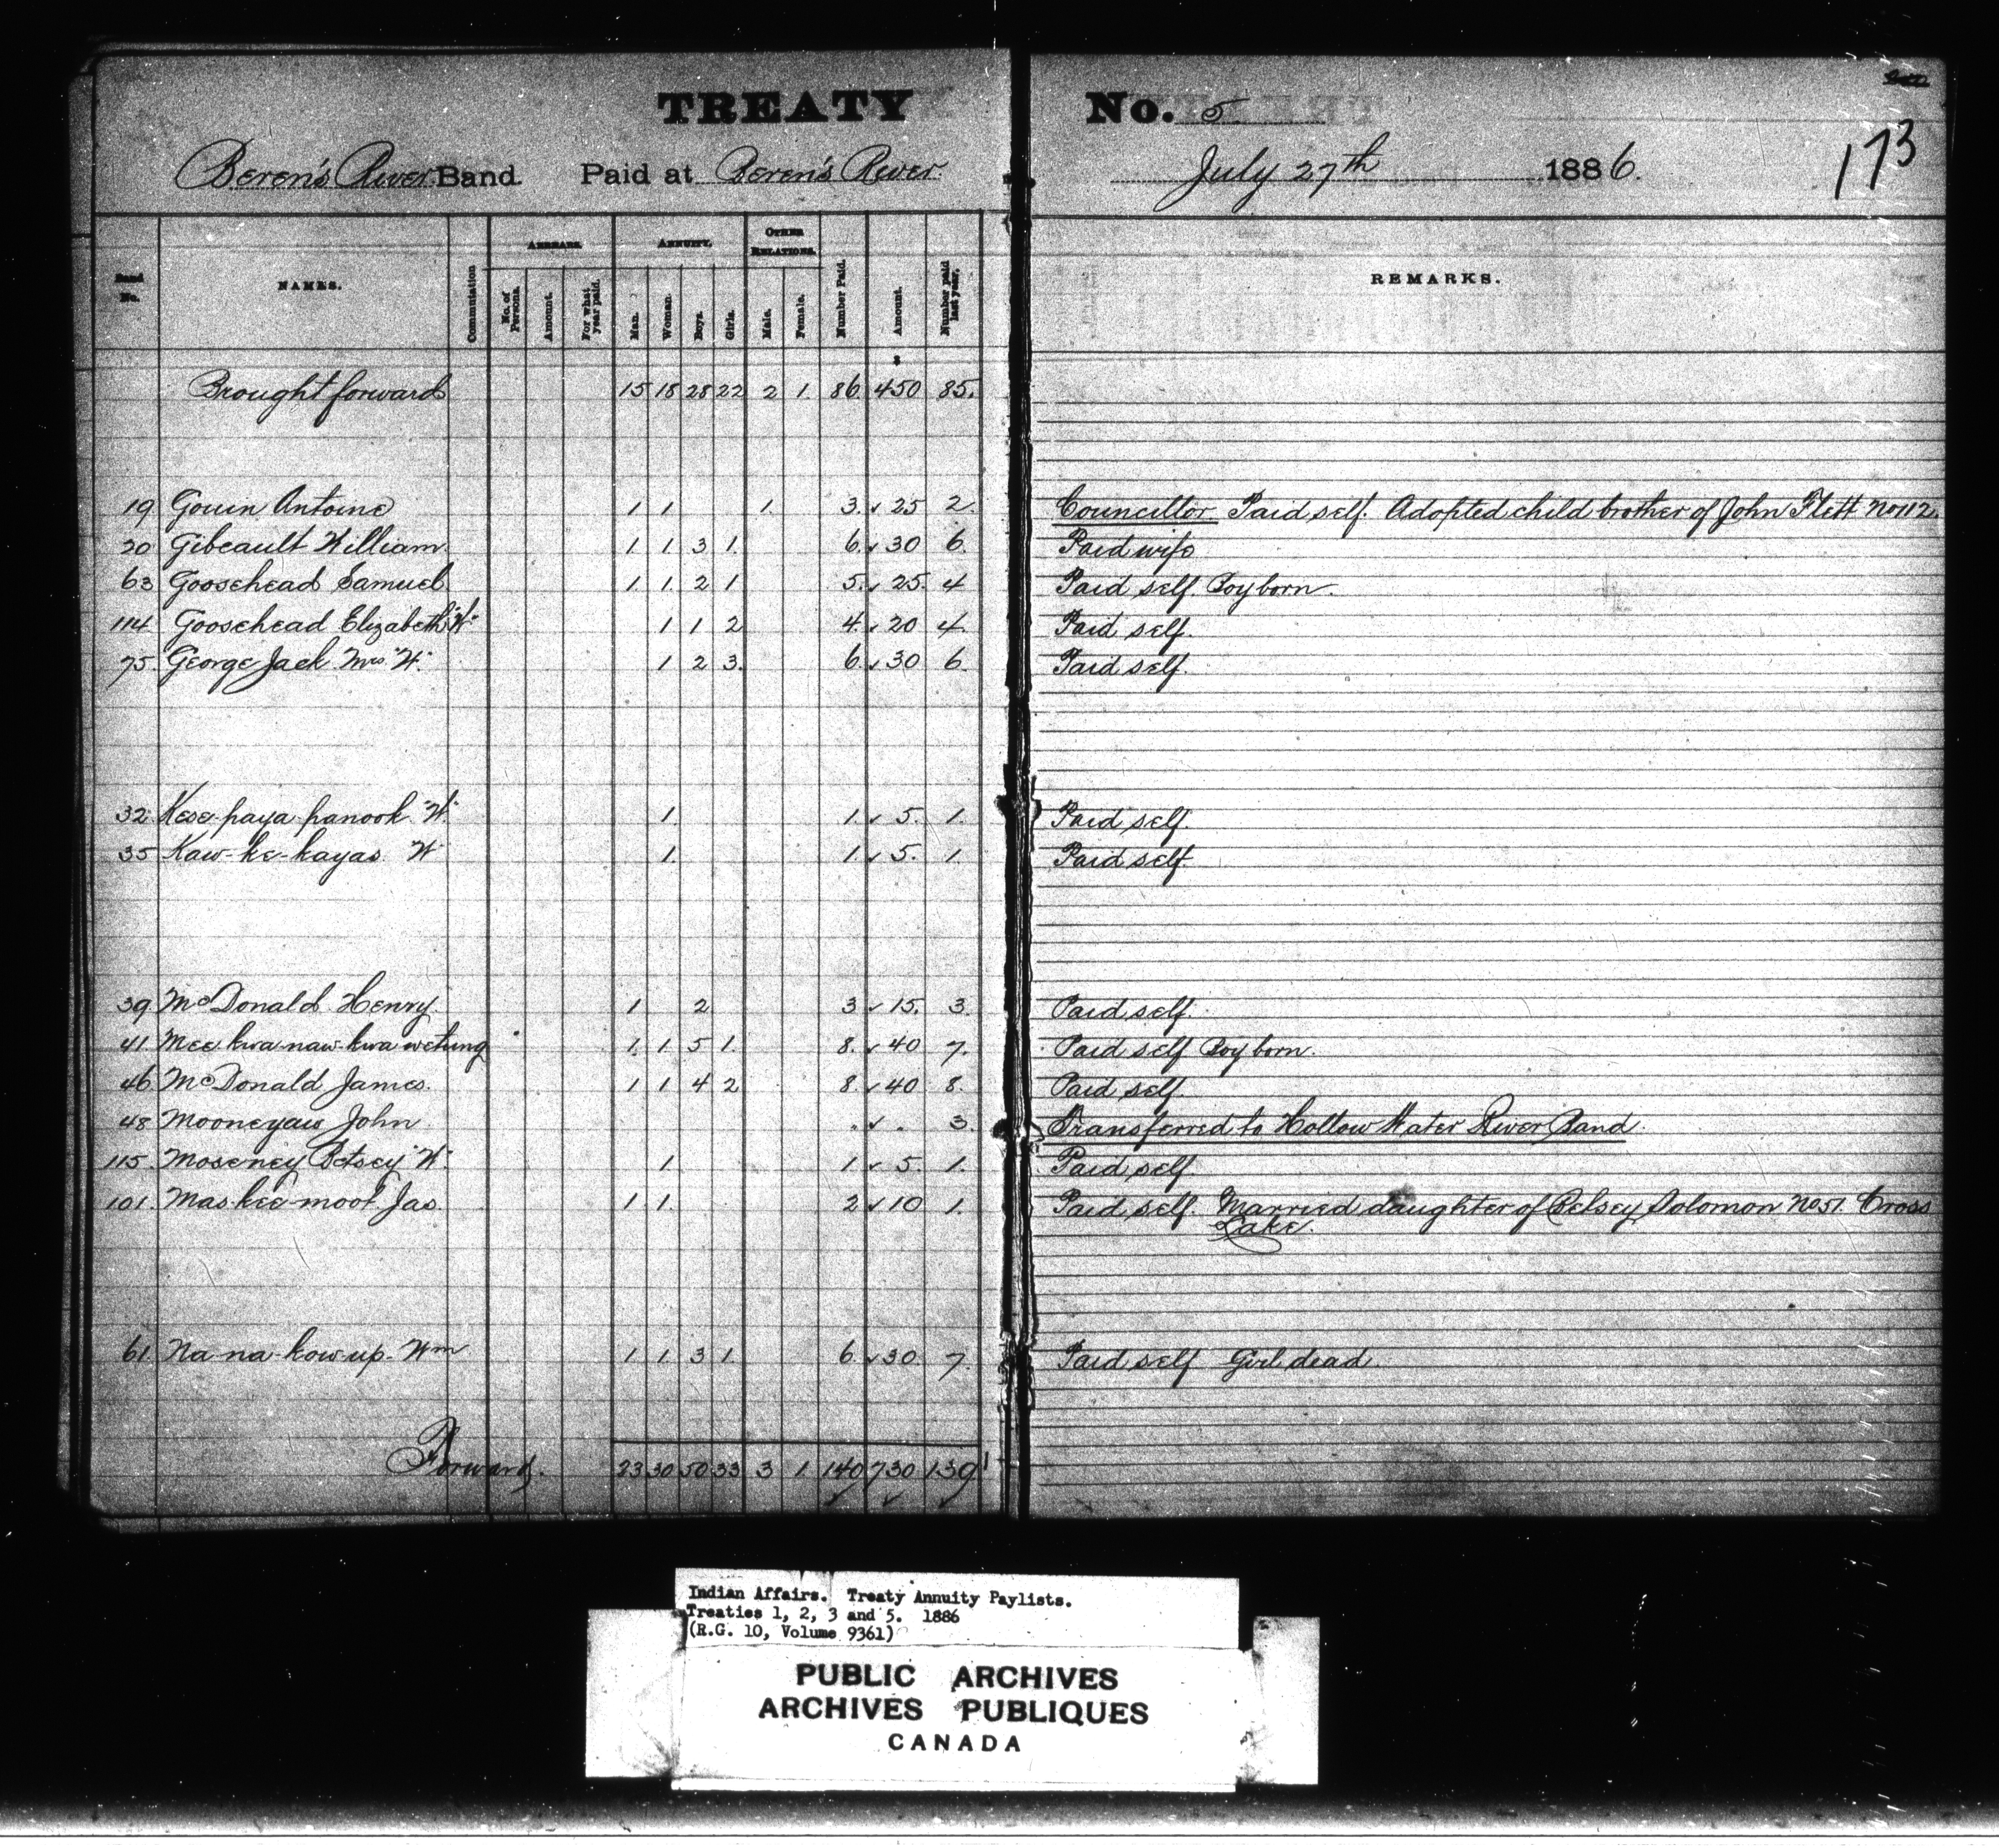 TREATY No. 5
173
Beren's River Band Paid at Beren's River. July 27th 1886.
Band No. NAMES. Commutation ARREARS. No. of Persons. Amount. For what year paid. ANNUITY. Man. Woman. Boys. Girls. OTHER RELATIONS. Male. Female. Number Paid. Amount. Number paid last year. REMARKS.
$
Brought forward 15 18 28 22 2 1. 86. 450 85.
19 Gouin Antoine 1 1 1. 3. ✓ 25 2. Councillor Paid self. Adopted child brother of John Flett No 112.
20 Gibeault William 1 1 3 1. 6. ✓ 30 6. Paid wife
63 Goosehead Samuel 1. 1. 2 1 5. ✓ 25. 4 Paid self. Boy born.
114 Goosehead Elizabeth "W" 1 1 2 4. ✓ 20 4. Paid self.
75. George Jack Mrs "W" 1 2 3. 6. ✓ 30 6. Paid self.
32. Kese-paya-panook "W" 1. 1. ✓ 5. 1. Paid self.
35 Kaw-ke-kayas W 1. 1. ✓ 5. 1. Paid self
39 McDonald Henry. 1 2 3 ✓ 15. 3. Paid self.
41. Mee kwa-naw-kwa wetung 1. 1 5 1. 8. ✓ 40 7. Paid self Boy born.
46 McDonald James. 1 1 4 2 8. ✓ 40 8. Paid self.
48 Mooneyaw John . ✓ . 3. Transferred to Hollow Water River Band.
115. Moseney Betsey "W". 1. 1 ✓ 5. 1. Paid self
101. Mas-kee-moot Jas 1 1. 2 ✓ 10 1. Paid self. Married daughter of Betsey Solomon No 51. Cross
Lake.
61. Na-na-kow-up. Wm 1 1 3 1. 6. ✓ 30 7. Paid self Girl dead.
Forward. 23 30 50 33 3 1 140 730 139
✓ ✓ ✓
Indian Affairs. Treaty Annuity Paylists.
Treaties 1, 2, 3 and 5. 1886
(R.G. 10, Volume 9361)
PUBLIC ARCHIVES
ARCHIVES PUBLIQUES
CANADA